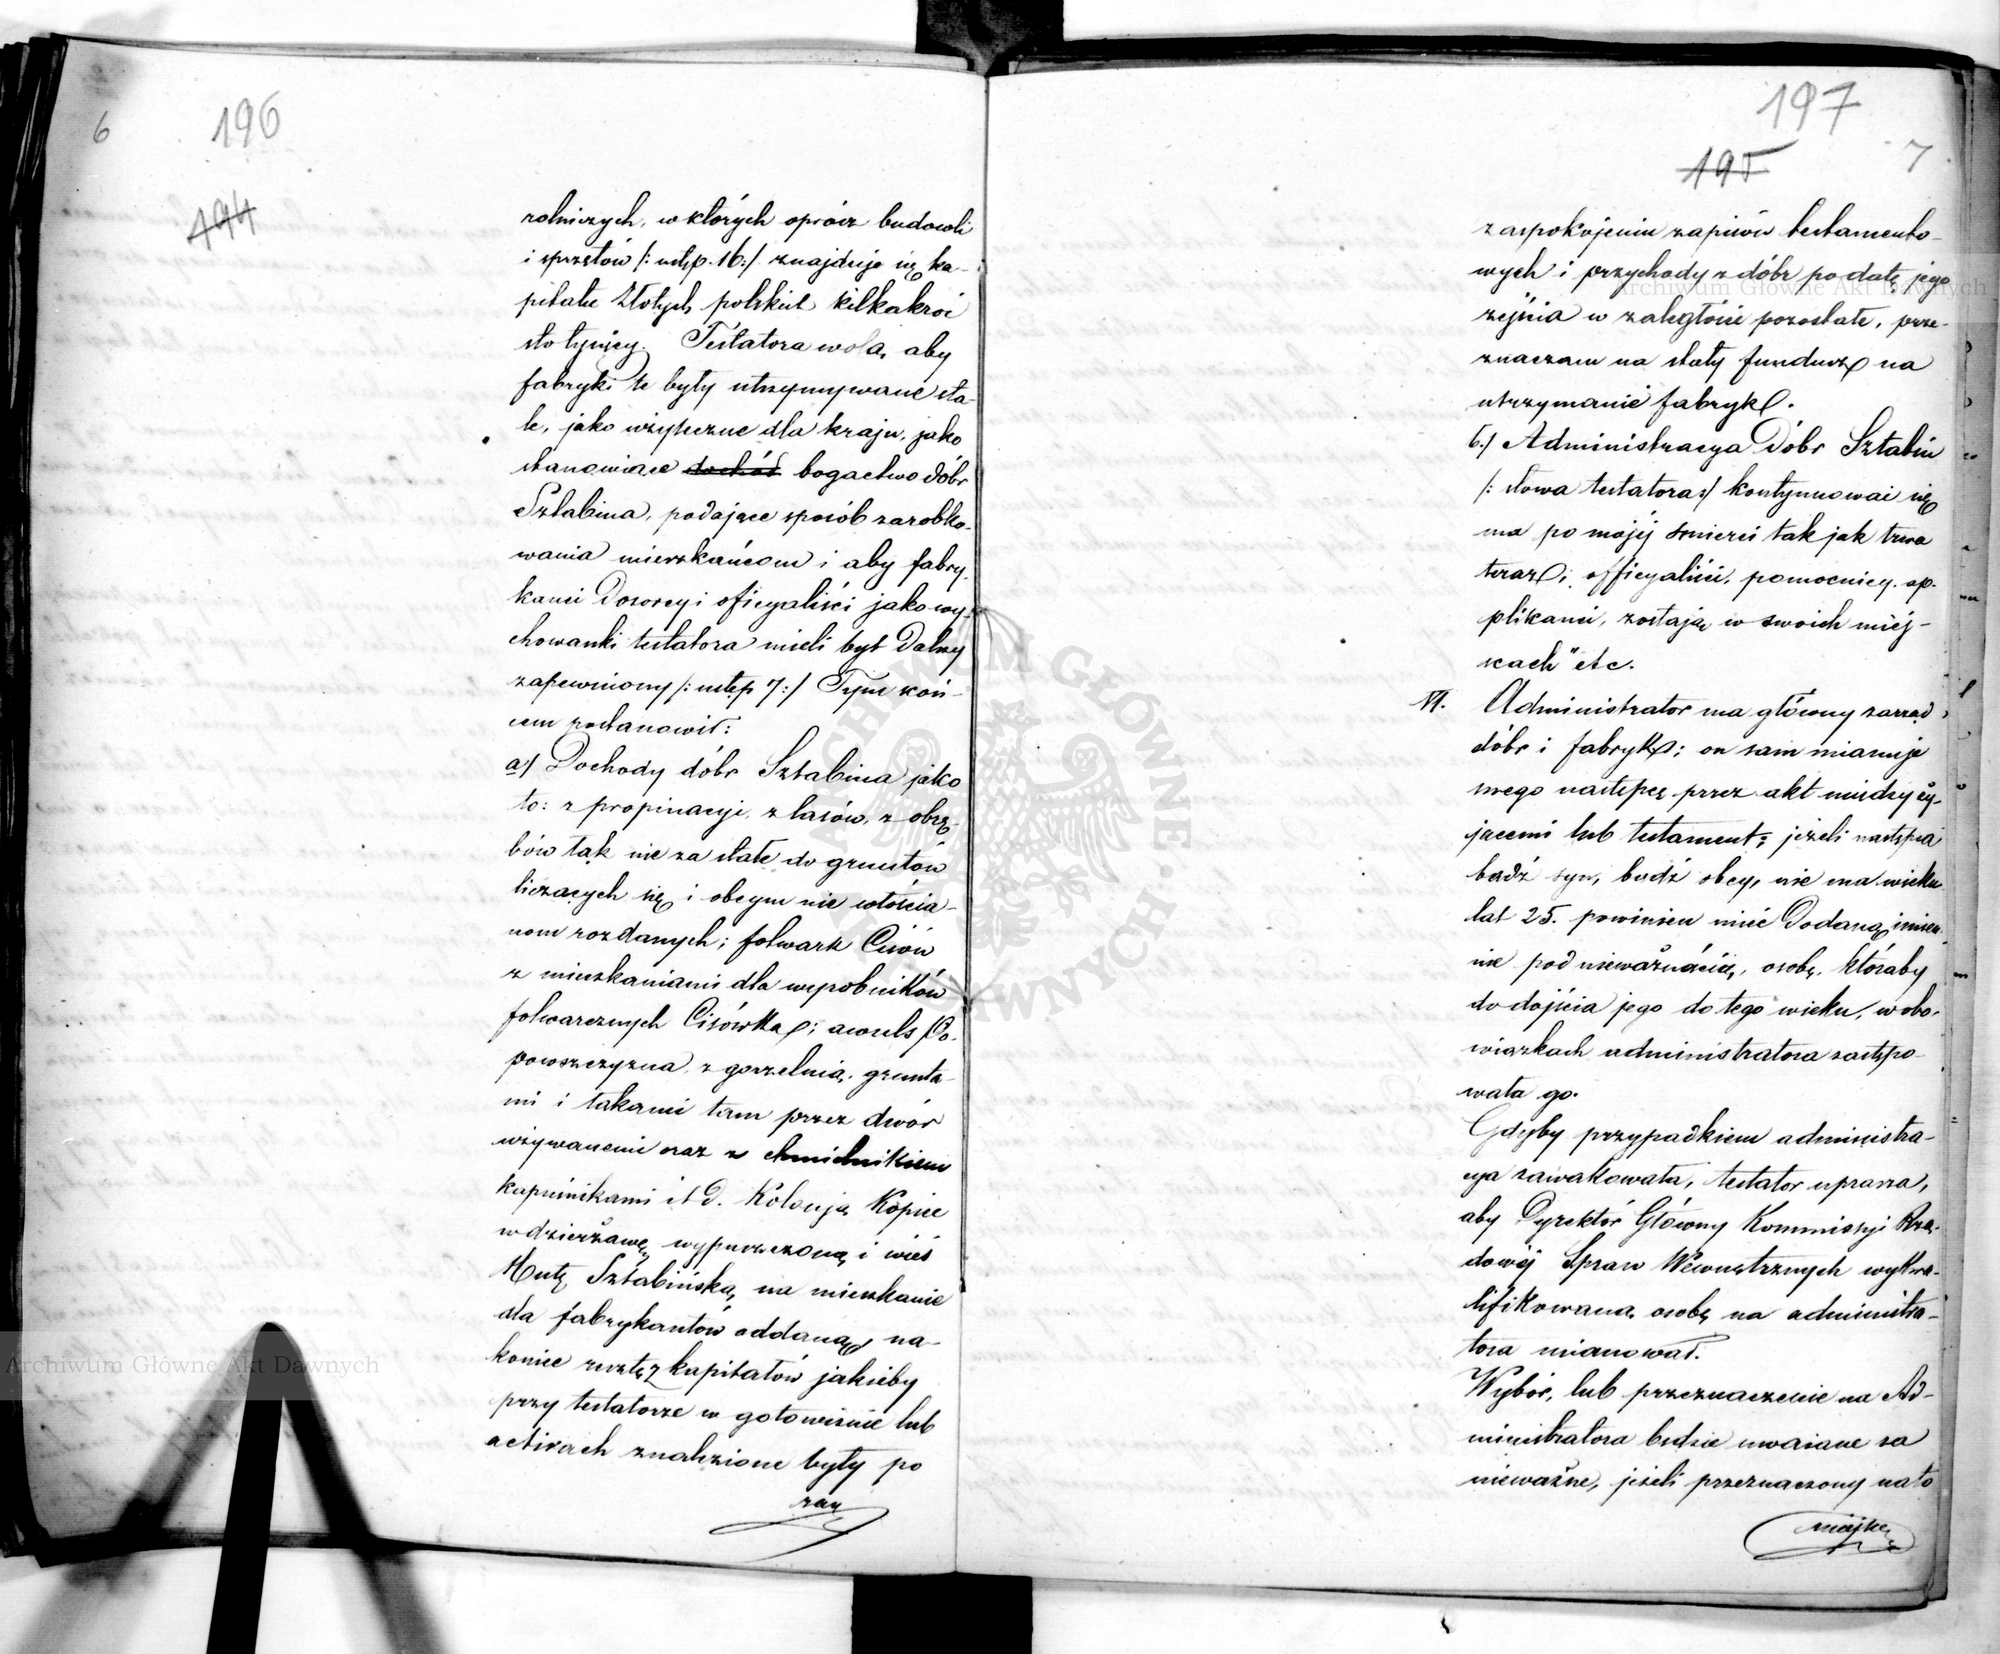 6
196
194
rolniczych, w których oprócz budowli
i sprzętów /: ustęp. 16 :/ znajduje się ka-
pitału złotych polskich kilkakroć
sto tysięcy. Testatora wolą, aby
fabryki te były utrzymywane sta-
le, jako użyteczne dla kraju, jako
stanowiące dochód bogactwo dóbr
Sztabina, podające sposób zarobko-
wania mieszkańcom i aby fabry-
kanci Dozorcy i oficyaliści jako wy-
chowanki testatora mieli byt dalszy
zapewniony /: ustęp 7 :/ Tym koń-
cem postanowił:
a/ Dochody dóbr Sztabina jako
to: z propinacyi, z lasów, z obrę-
bów tak nie za stałe do gruntów
liczących się i obcym nie włościa-
nom rozdanych; folwark Cisów
z mieszkaniami dla wyrobników
folwarcznych Cisówką; awuls Po-
powszczyzna, z gorzelnią, grunta-
mi i łąkami tam przez dwór
używanemi oraz z chmielnikiem
kapuśnikami i t d. Kolonją Kopiec
w dzierżawę wypuszczoną i wieś
Hutę Sztabińską, na mieszkanie
dla fabrykantów oddaną, na-
koniec resztę z kapitałów jakieby
przy testatorze w gotowiźnie lub
activach znalezione były po
zas
197
195
7
zaspokojeniu zapisów testamento-
wych i przychody z dóbr po datę jego
zejścia w zaległości pozostałe, prze-
znaczam na stały fundusz na
utrzymanie fabryk.
b./ Administracya Dóbr Sztabin
/: słowa testatora :/ kontynuować się
ma po mojéj śmierci tak jak trwa
teraz; officyaliści, pomocnicy, ap-
plikanci, zostają w swoich miej-
scach" etc.
VI. Administrator ma główny zarząd
dóbr i fabryk; on sam mianuje
swego następcę przez akt między ży-
jącemi lub testament; jeżeli następca
bądź syn, bądź obcy, nie ma wieku
lat 25. powinien mieć Dodaną imien-
nie pod nieważnością, osobę, któraby
do dojścia jego do tego wieku, w obo-
wiązkach administratora zastępo-
wała go.
Gdyby przypadkiem administra-
cya zawakowała, testator uprasza,
aby Dyrektor Główny Kommisyi Rzą-
dowéj Spraw Wewnętrznych wykwa-
lifikowaną osobę na administra-
tora mianował.
Wybór, lub przeznaczenie na Ad-
ministratora będzie uważane za
nieważne, jeżeli przeznaczony na to
Archiwum Główne Akt Dawnych
Archiwum Główne Akt Dawnych
ARCHIWUM GŁÓWNE AKT DAWNYCH